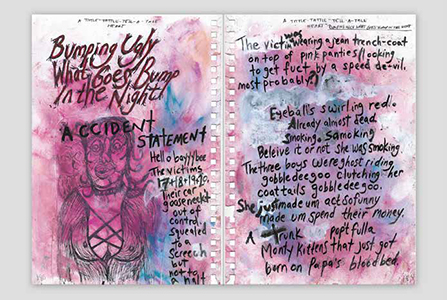 A TITTLE-TATTLE-TELL-A-TALE
HEART
Bumping Ugly
What Goes Bump
In the Night!
ACCIDENT
STATEMENT
Hello bayyybee
The victims
17+18+19+20.
Their car
gooseneckt
out of
control
squealed
to a
screech
but
not to
a halt
A TITTLE-TATTLE-TELL-A-TALE
HEART
The victim was wearing a jean trench-coat
on top of pink panties looking
to get fuct by a speed de-vil.
most probably?
Eyeball's swirling red.
Already almost dead.
smoking. Samoking
Beleive it or not she was smoking.
The three boys were ghost riding
gobbledeegoo clutching her
coattails gobbledeegoo.
She just made um act so funny
made um spend their money.
A trunk popt fulla
Monty Kittens that just got
born on Papa's bloodbed.